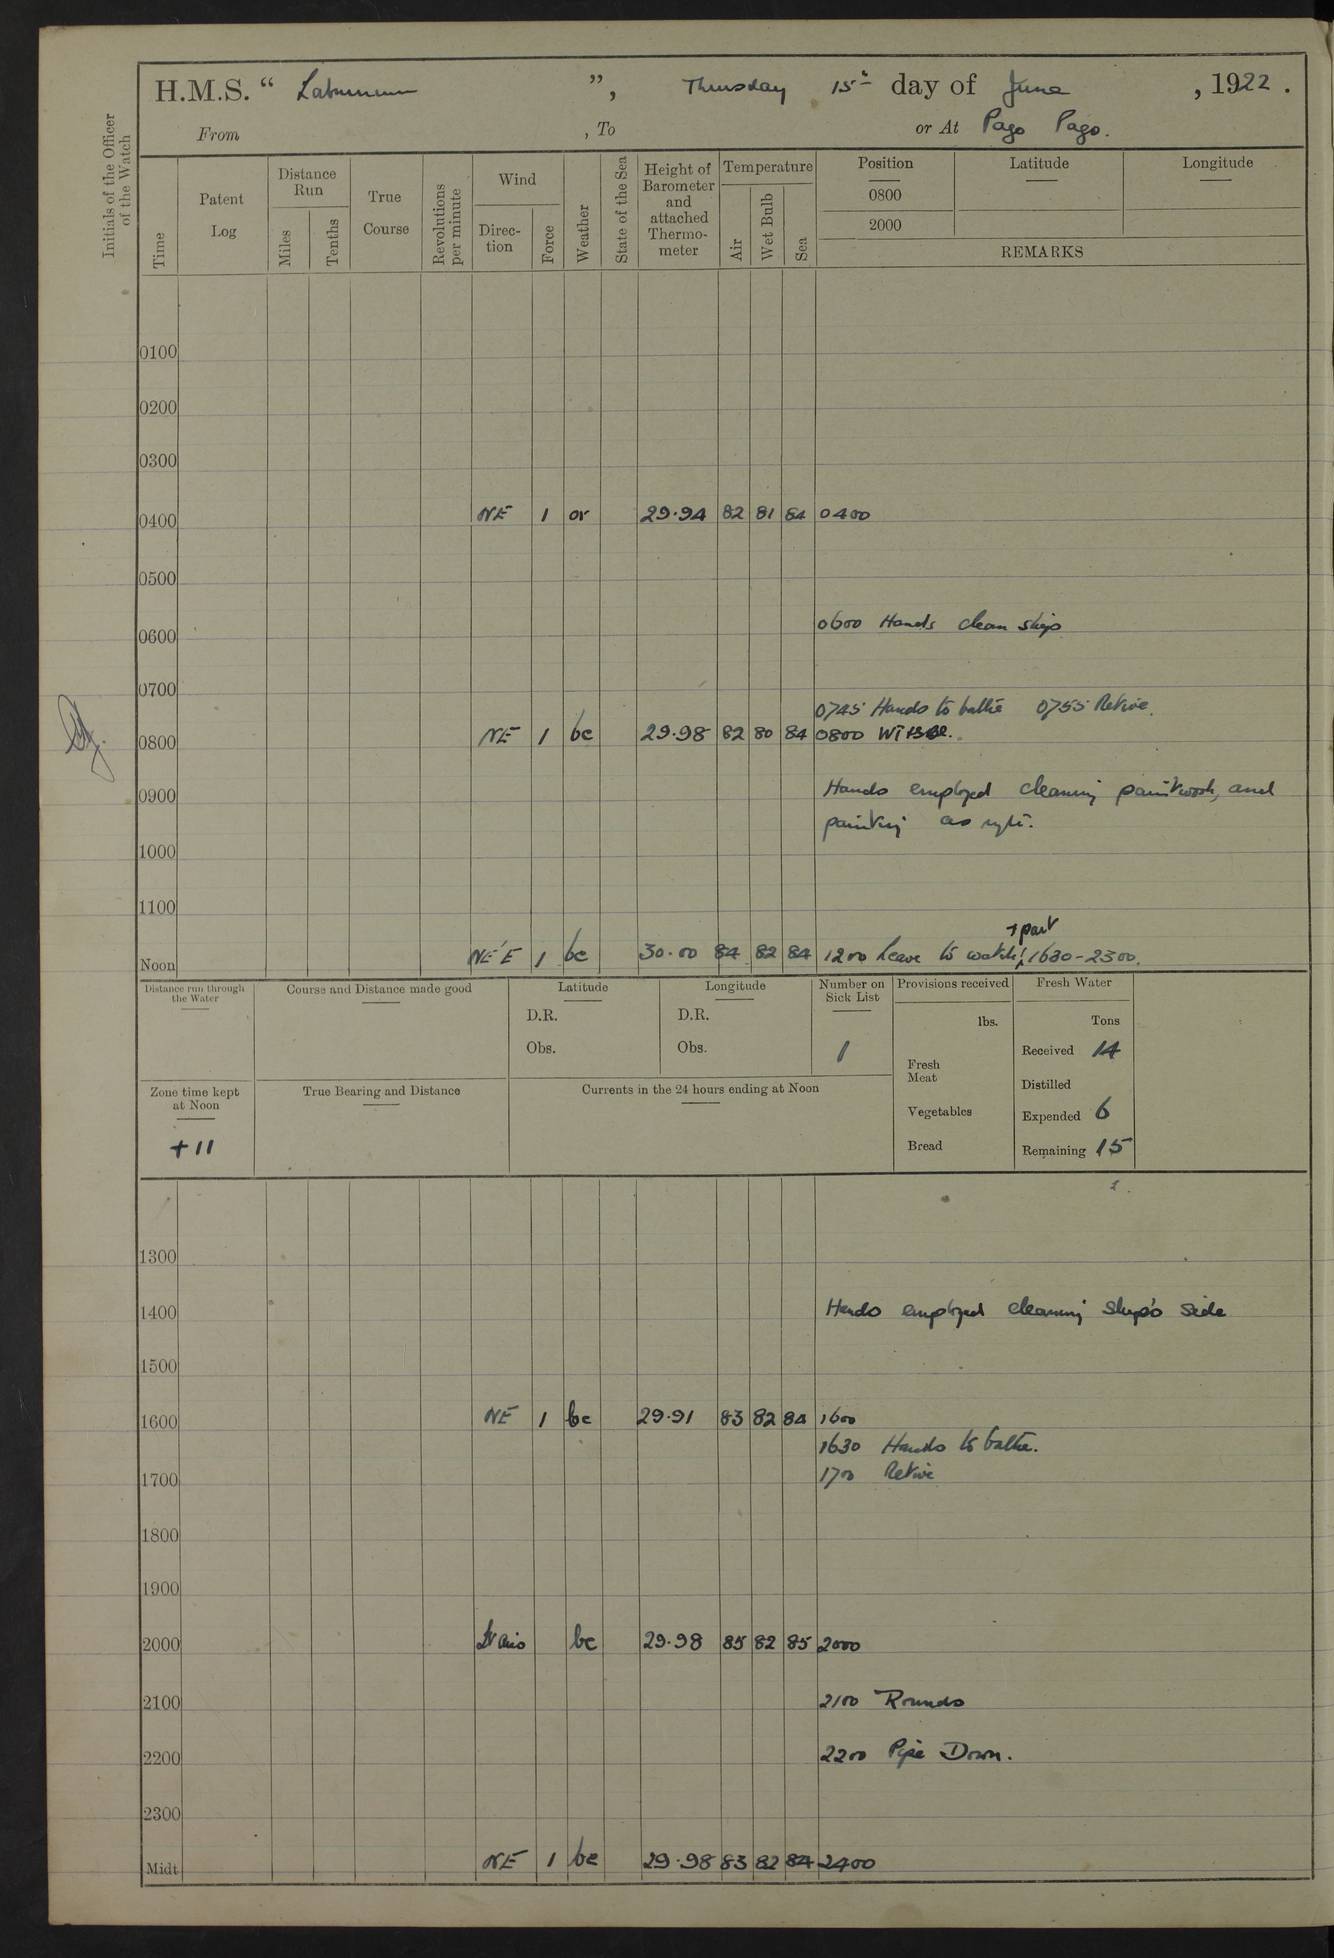 H.M.S. “ Laburnum ”, Thursday 15th day of June , 1922 .
From , To or At Pago Pago.
Initials of the Officer of the Watch
Time
Patent Log
Distance Run
Miles
Tenths
True Course
Revolutions per minute
Wind
Direc-tion
Force
Weather
State of the Sea
Height of Barometer and attached Thermo-meter
Temperature
Air
Wet Bulb
Sea
Position
Latitude
Longitude
0800
2000
REMARKS
0100
0200
0300
0400 NE 1 or 29.94 82 81 84 0400
0500
0600 0600 Hands clean ship
0700
0745 Hands to bathe 0755 Retire.
0800 NE 1 bc 29.98 82 80 84 0800
0900 Hands employed cleaning paintwork, and
painting as reqte.
1000
1100
+ part
Noon NE'E 1 bc 30.00 84 82 84 1200 Leave to watch 1630-2300.
Distance run through the Water
Course and Distance made good
Latitude
D.R.
Obs.
Longitude
D.R.
Obs.
Number on Sick List
1
Provisions received
lbs.
Fresh Meat
Vegetables
Bread
Fresh Water
Tons
Received 14
Distilled
Expended 6
Remaining 15
Zone time kept at Noon
+11
True Bearing and Distance
Currents in the 24 hours ending at Noon
1300
1400 Hands employed cleaning ship's side
1500
1600 NE 1 bc 29.91 83 82 84 1600
1630 Hands to bathe.
1700 1700 Retire
1800
1900
2000 Lt airs bc 29.98 85 82 85 2000
2100 2100 Rounds
2200 2200 Pipe Down.
2300
Midt NE 1 bc 29.98 83 82 84 2400